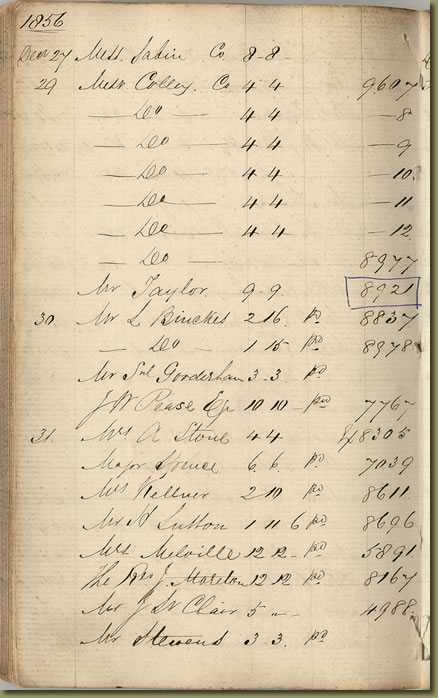 1856
Decr 27 Messrs Sabin Co 8 - 8 -
29 Messrs Colley Co 4 4 9607
— Do — 4 4 — 8
— Do — 4 4 — 9
— Do — 4 4 — 10
— Do — 4 4 — 11
— Do — 4 4 — 12
— Do — 8977
Mr Taylor 9 9. 8921
30. Mr L Binckes 2 16. pd 8837
— Do 1 15 pd 8978
Mr Saml Gooderham 3 - 3. pd
J W Pease Esq 10 10 - pd 7767
31. Mrs A Stone 4 4 8305
Major Spence 6. 6. pd 7039
Mrs Kellner 2 10 pd 8611
Mr A Sutton 1 11 6 pd 8696
Mrs Melville 12 12 - pd 5891
The Rev J. Moreton 12 12 pd 8167
Mr J St Clair 5 " - 4988
Mr Stevens 3 3. pd